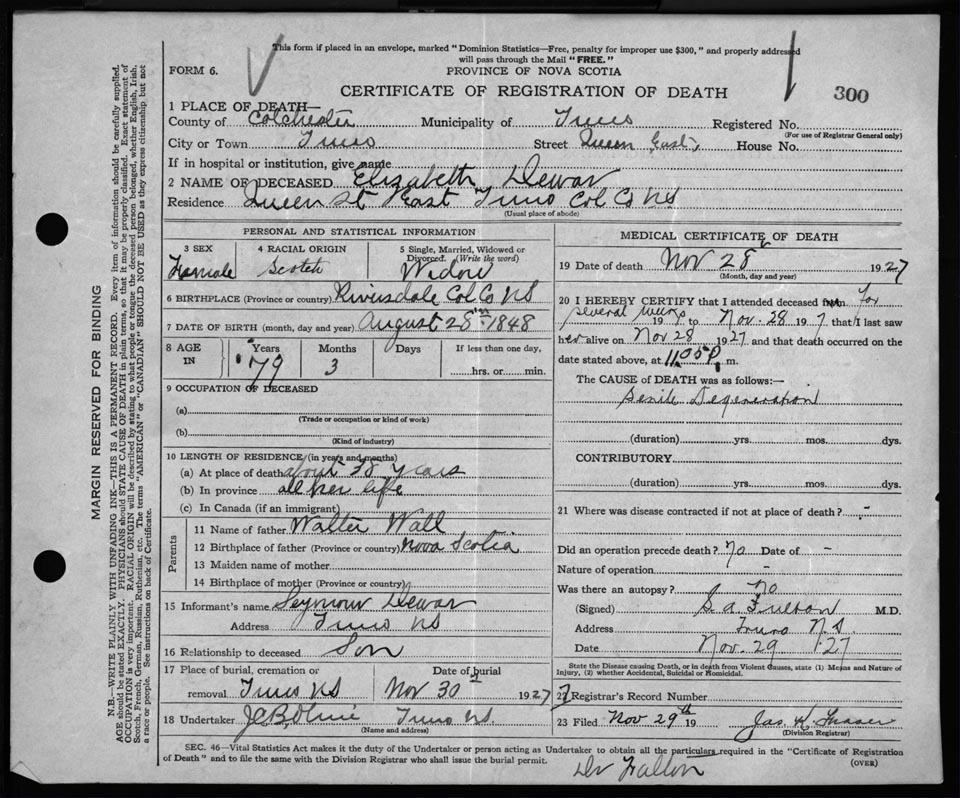 This form if placed in an envelope, marked "Dominion Statistics—Free, penalty for improper use $300," and properly addressed
will pass through the Mail "FREE."
FORM 6.
PROVINCE OF NOVA SCOTIA
CERTIFICATE OF REGISTRATION OF DEATH
300
1 PLACE OF DEATH—
County of Colchester Municipality of Truro Registered No.
(For use of Registrar General only)
City or Town Truro Street Queen East House No.
If in hospital or institution, give name
2 NAME OF DECEASED Elizabeth Dewar
Residence Queen St East Truro Col Co NS
(Usual place of abode)
PERSONAL AND STATISTICAL INFORMATION
3 SEX 4 RACIAL ORIGIN 5 Single, Married, Widowed or
Divorced. (Write the word)
Female Scotch Widow
6 BIRTHPLACE (Province or country) Riversdale Col Co NS
7 DATE OF BIRTH (month, day and year) August 28th 1848
8 AGE IN Years Months Days If less than one day,
79 3 hrs. or min.
9 OCCUPATION OF DECEASED
(a)
(Trade or occupation or kind of work)
(b)
(Kind of industry)
10 LENGTH OF RESIDENCE (in years and months)
(a) At place of death about 38 years
(b) In province all her life
(c) In Canada (if an immigrant)
Parents
11 Name of father Walter Wall
12 Birthplace of father (Province or country) Nova Scotia
13 Maiden name of mother
14 Birthplace of mother (Province or country)
15 Informant's name Seymour Dewar
Address Truro NS
16 Relationship to deceased Son
17 Place of burial, cremation or Date of burial
removal Truro NS Nov 30 1927
18 Undertaker Truro NS
(Name and address)
MEDICAL CERTIFICATE OF DEATH
19 Date of death Nov 28 1927
(Month, day and year)
20 I HEREBY CERTIFY that I attended deceased from for
several 19 to Nov. 28 1927 that I last saw
her alive on Nov 28 1927 and that death occurred on the
date stated above, at 11.05 P. m.
The CAUSE of DEATH was as follows:—
Senile Degeneration
(duration) yrs. mos. dys.
CONTRIBUTORY
(duration) yrs. mos. dys.
21 Where was disease contracted if not at place of death? -
Did an operation precede death? No Date of -
Nature of operation
Was there an autopsy? no
(Signed) S. A. Fulton M.D.
Address Truro N.S.
Date Nov. 29 27
State the Disease causing Death, or in death from Violent Causes, state (1) Means and Nature of
Injury, (2) whether Accidental, Suicidal or Homicidal.
22 Registrar's Record Number
23 Filed Nov 29th 19 Jas. K. Fraser
(Division Registrar)
SEC. 46—Vital Statistics Act makes it the duty of the Undertaker or person acting as Undertaker to obtain all the particulars required in the "Certificate of Registration
of Death" and to file the same with the Division Registrar who shall issue the burial permit.
(OVER)
MARGIN RESERVED FOR BINDING
N.B.—WRITE PLAINLY WITH UNFADING INK—THIS IS A PERMANENT RECORD. Every item of information should be carefully supplied.
AGE should be stated EXACTLY. PHYSICIANS should STATE CAUSE OF DEATH in plain terms, so that it may be properly classified. Exact statement of
OCCUPATION is very important. RACIAL ORIGIN will be described by stating to what people or tongue the deceased person belonged, whether English, Irish,
Scotch, French, German, Russian, Ruthenian, etc. The terms "AMERICAN" or "CANADIAN" SHOULD NOT BE USED as they express citizenship but not
a race or people. See instructions on back of Certificate.